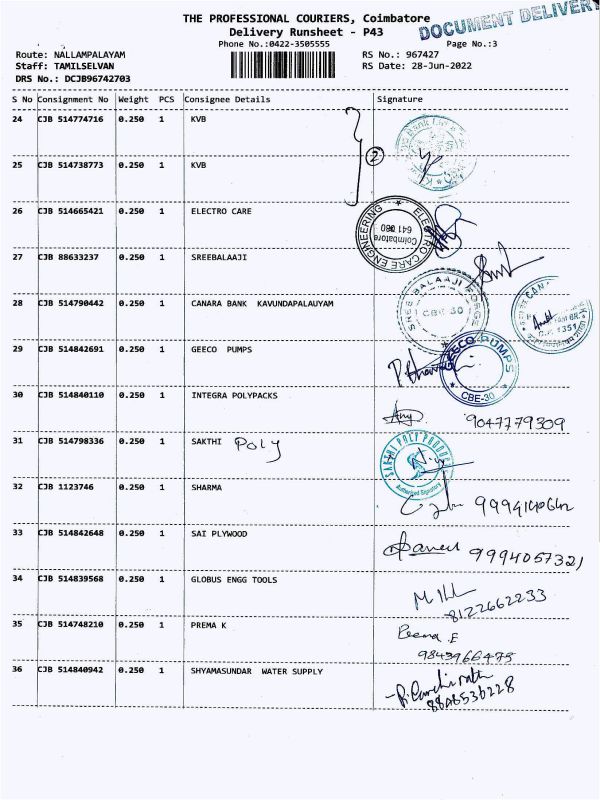 THE PROFESSIONAL COURIERS, Coimbatore
DOCUMENT DELIVERY
Delivery Runsheet - P43
Phone No.:0422-3505555
Page No.:3
Route: NALLAMPALAYAM
RS No.: 967427
Staff: TAMILSELVAN
RS Date: 28-Jun-2022
DRS No.: DCJB96742703
S No Consignment No Weight PCS Consignee Details Signature
24 CJB 514774716 0.250 1 KVB
2
25 CJB 514738773 0.250 1 KVB
26 CJB 514665421 0.250 1 ELECTRO CARE
ELECTRO CARE ENGINEERING
Coimbatore
27 CJB 88633237 0.250 1 SREEBALAAJI
SHREE BALAAJI FORGE
CBE 30
28 CJB 514790442 0.250 1 CANARA BANK KAVUNDAPALAUYAM
29 CJB 514842691 0.250 1 GEECO PUMPS
GEECO PUMPS
CBE-30
30 CJB 514840110 0.250 1 INTEGRA POLYPACKS
9047779309
31 CJB 514798336 0.250 1 SAKTHI Poly
SAKTHI POLY PRODUCT
Authorised Signatory
32 CJB 1123746 0.250 1 SHARMA
33 CJB 514842648 0.250 1 SAI PLYWOOD
9994057321
34 CJB 514839568 0.250 1 GLOBUS ENGG TOOLS
8122662233
35 CJB 514748210 0.250 1 PREMA K
9843966475
36 CJB 514840942 0.250 1 SHYAMASUNDAR WATER SUPPLY